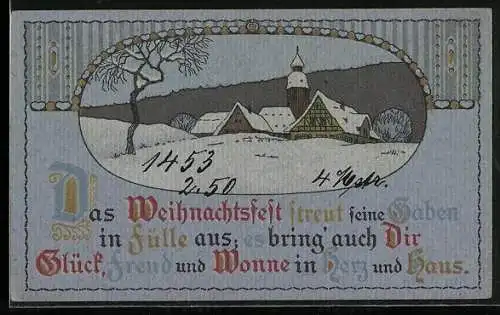 1453
2.50 4
Das Weihnachtsfest streut seine Gaben
in Fülle aus; es bring' auch Dir
Glück, Freud und Wonne in Herz und Haus.